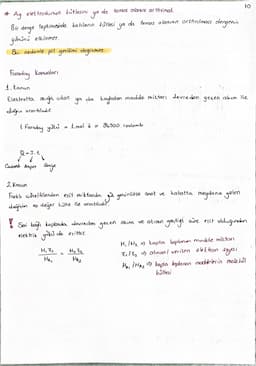 10
* Ag elektrodunun kütlesini ya da temas alanını arttırmak
Bir denge tepkimesinde katıların kütlesi ya da temas alanının arttırılması dengenin
yönünü etkilemez.
Bu nedenle pil gerilimi değişmez.
Faraday Kanunları
1. Kanun
Elektrotta açığa çıkan ya da kaplanan madde miktarı devreden geçen akım ile
doğru orantılıdır.
1 Faraday yükü = 1 mol é = 96500 coulomb
Q = I.t
Coulomb Amper Saniye
2. Kanun
Farklı elektrolitlerden eşit miktarda yük geçirilirse anot ve katotta meydana gelen
değişim eş değer kütle ile orantılıdır.
! Seri bağlı kaplarda devreden geçen akım ve akımın geçtiği süre eşit olduğundan
elektrik yükü de eşittir.
M₁ Z₁ / MA₁ = M₂ Z₂ / MA₂
M₁/M₂ ⇒ kapta toplanan madde miktarı
Z₁/Z₂ ⇒ alınan/verilen elektron sayısı
MA₁/MA₂ ⇒ kapta toplanan maddelerin molekül
kütlesi